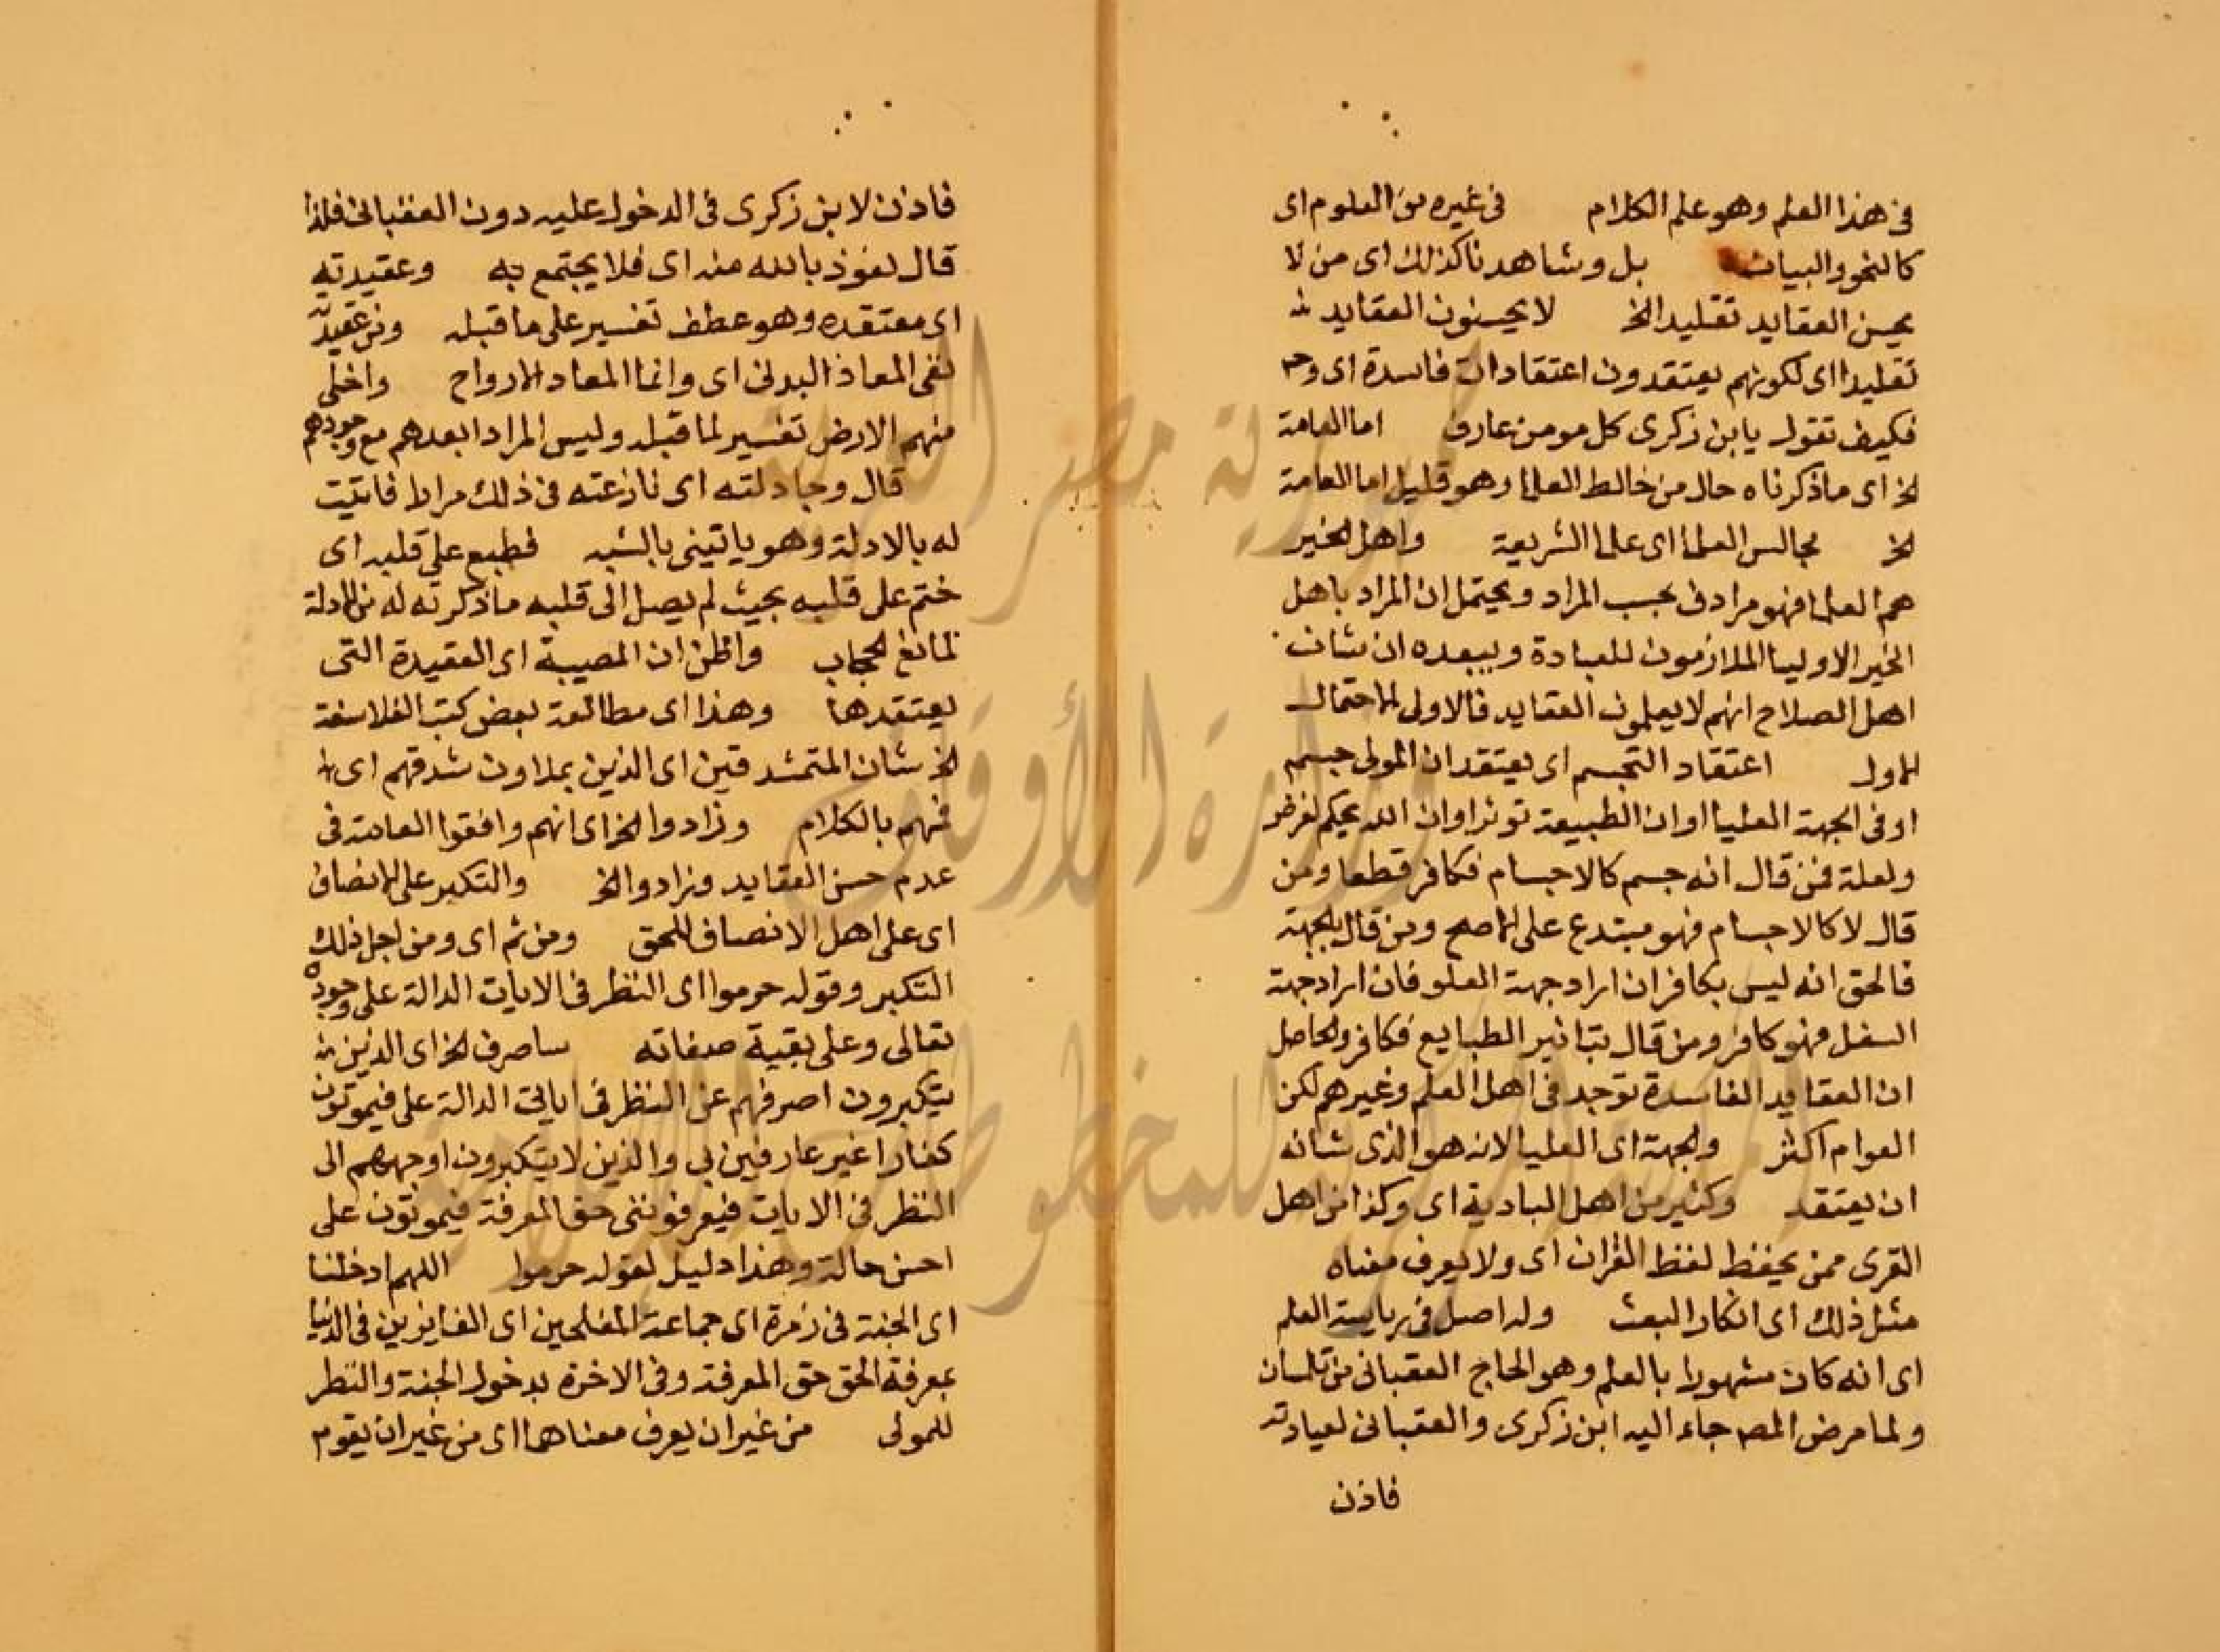 في هذا العلم وهو علم الكلام في غيره من العلوم اى
كالنحو والبيان بل وشاهدنا كذلك اى من لا
يحسن العقايد تقليدا الخ لا يحسنون العقايد
تقليدا اى لكونهم يعتقدون اعتقادات فاسدة اى وح
فكيف تقول يا ابن زكرى كل مومن عارف اما العامة
الخ اى ما ذكرناه حال من خالط العلما وهو قليل اما العامة
الخ مجالس العلما اى علما الشريعة واهل الخير
هم العلما فهو مرادف بحسب المراد ويحتمل ان المراد باهل
الخير الاوليا الملازمون للعبادة ويبعده ان شان
اهل الصلاح انهم لا يعلمون العقايد فالاولى الاحتمال
الاول اعتقاد التجسم اى يعتقد ان المولى جسم
او في الجهة العليا او ان الطبيعة توثر او ان الله يحكم لغرض
ولعلة فمن قال انه جسم كالاجسام فكافر قطعا ومن
قال لا كالاجسام فهو مبتدع على الاصح ومن قال بالجهة
فالحق انه ليس بكافر ان اراد جهة العلو فان اراد جهة
السفل فهو كافر ومن قال بتاثير الطبايع فكافر والحاصل
ان العقايد الفاسدة توجد في اهل العلم وغيرهم لكن
العوام اكثر والجهة اى العليا لانه هو الذى شانه
ان يعتقد وكثير من اهل البادية اى وكذا من اهل
القرى ممن يحفظ لفظ القران اى ولا يعرف معناه
مثل ذلك اى انكار البعث وله اصل في رياسة العلم
اى انه كان مشهورا بالعلم وهو الحاج العقبانى من تلمسان
ولما مرض المص جاء اليه ابن زكرى والعقبانى لعيادته
فاذن
فاذن لابن زكرى في الدخول عليه دون العقبانى فلذا
قال نعوذ بالله منه اى فلا يجتمع به وعقيدته
اى معتقده وهو عطف تفسير على ما قبله ومن عقيدته
نفى المعاد البدنى اى وانما المعاد الارواح واخلى
منهم الارض تفسير لما قبله وليس المراد ابعدهم مع وجودهم
قال وجادلته اى نازعته في ذلك مرارا فاتيت
له بالادلة وهو ياتينى بالشبه فطبع على قلبه اى
ختم على قلبه بحيث لم يصل الى قلبه ما ذكرته له من الادلة
لمانع الحجاب واظن ان المصيبة اى العقيدة التى
يعتقدها وهذا اى مطالعة بعض كتب الفلاسفة
الخ شان المتمشدقين اى الذين يملاون شدقهم اى
فمهم بالكلام وزادوا الخ اى انهم وافقوا العامة في
عدم حسن العقايد وزادوا الخ والتكبر على الانصاف
اى على اهل الانصاف للحق ومن ثم اى ومن اجل ذلك
التكبر وقوله حرموا اى النظر في الايات الدالة على وجوده
تعالى وعلى بقية صفاته ساصرف الخ اى الذين
يتكبرون اصرفهم عن النظر في اياتى الدالة على فيموتون
كفارا غير عارفين بى والذين لا يتكبرون اوجههم الى
النظر في الايات فيعرفوننى حق المعرفة فيموتون على
احسن حالة وهذا دليل لقوله حرموا اللهم ادخلنا
اى الجنة في زمرة اى جماعة المفلحين اى الفايزين في الدنيا
بمعرفة الحق حق المعرفة وفي الاخرة بدخول الجنة والنظر
للمولى من غير ان يعرف معناهما اى من غير ان يقوم